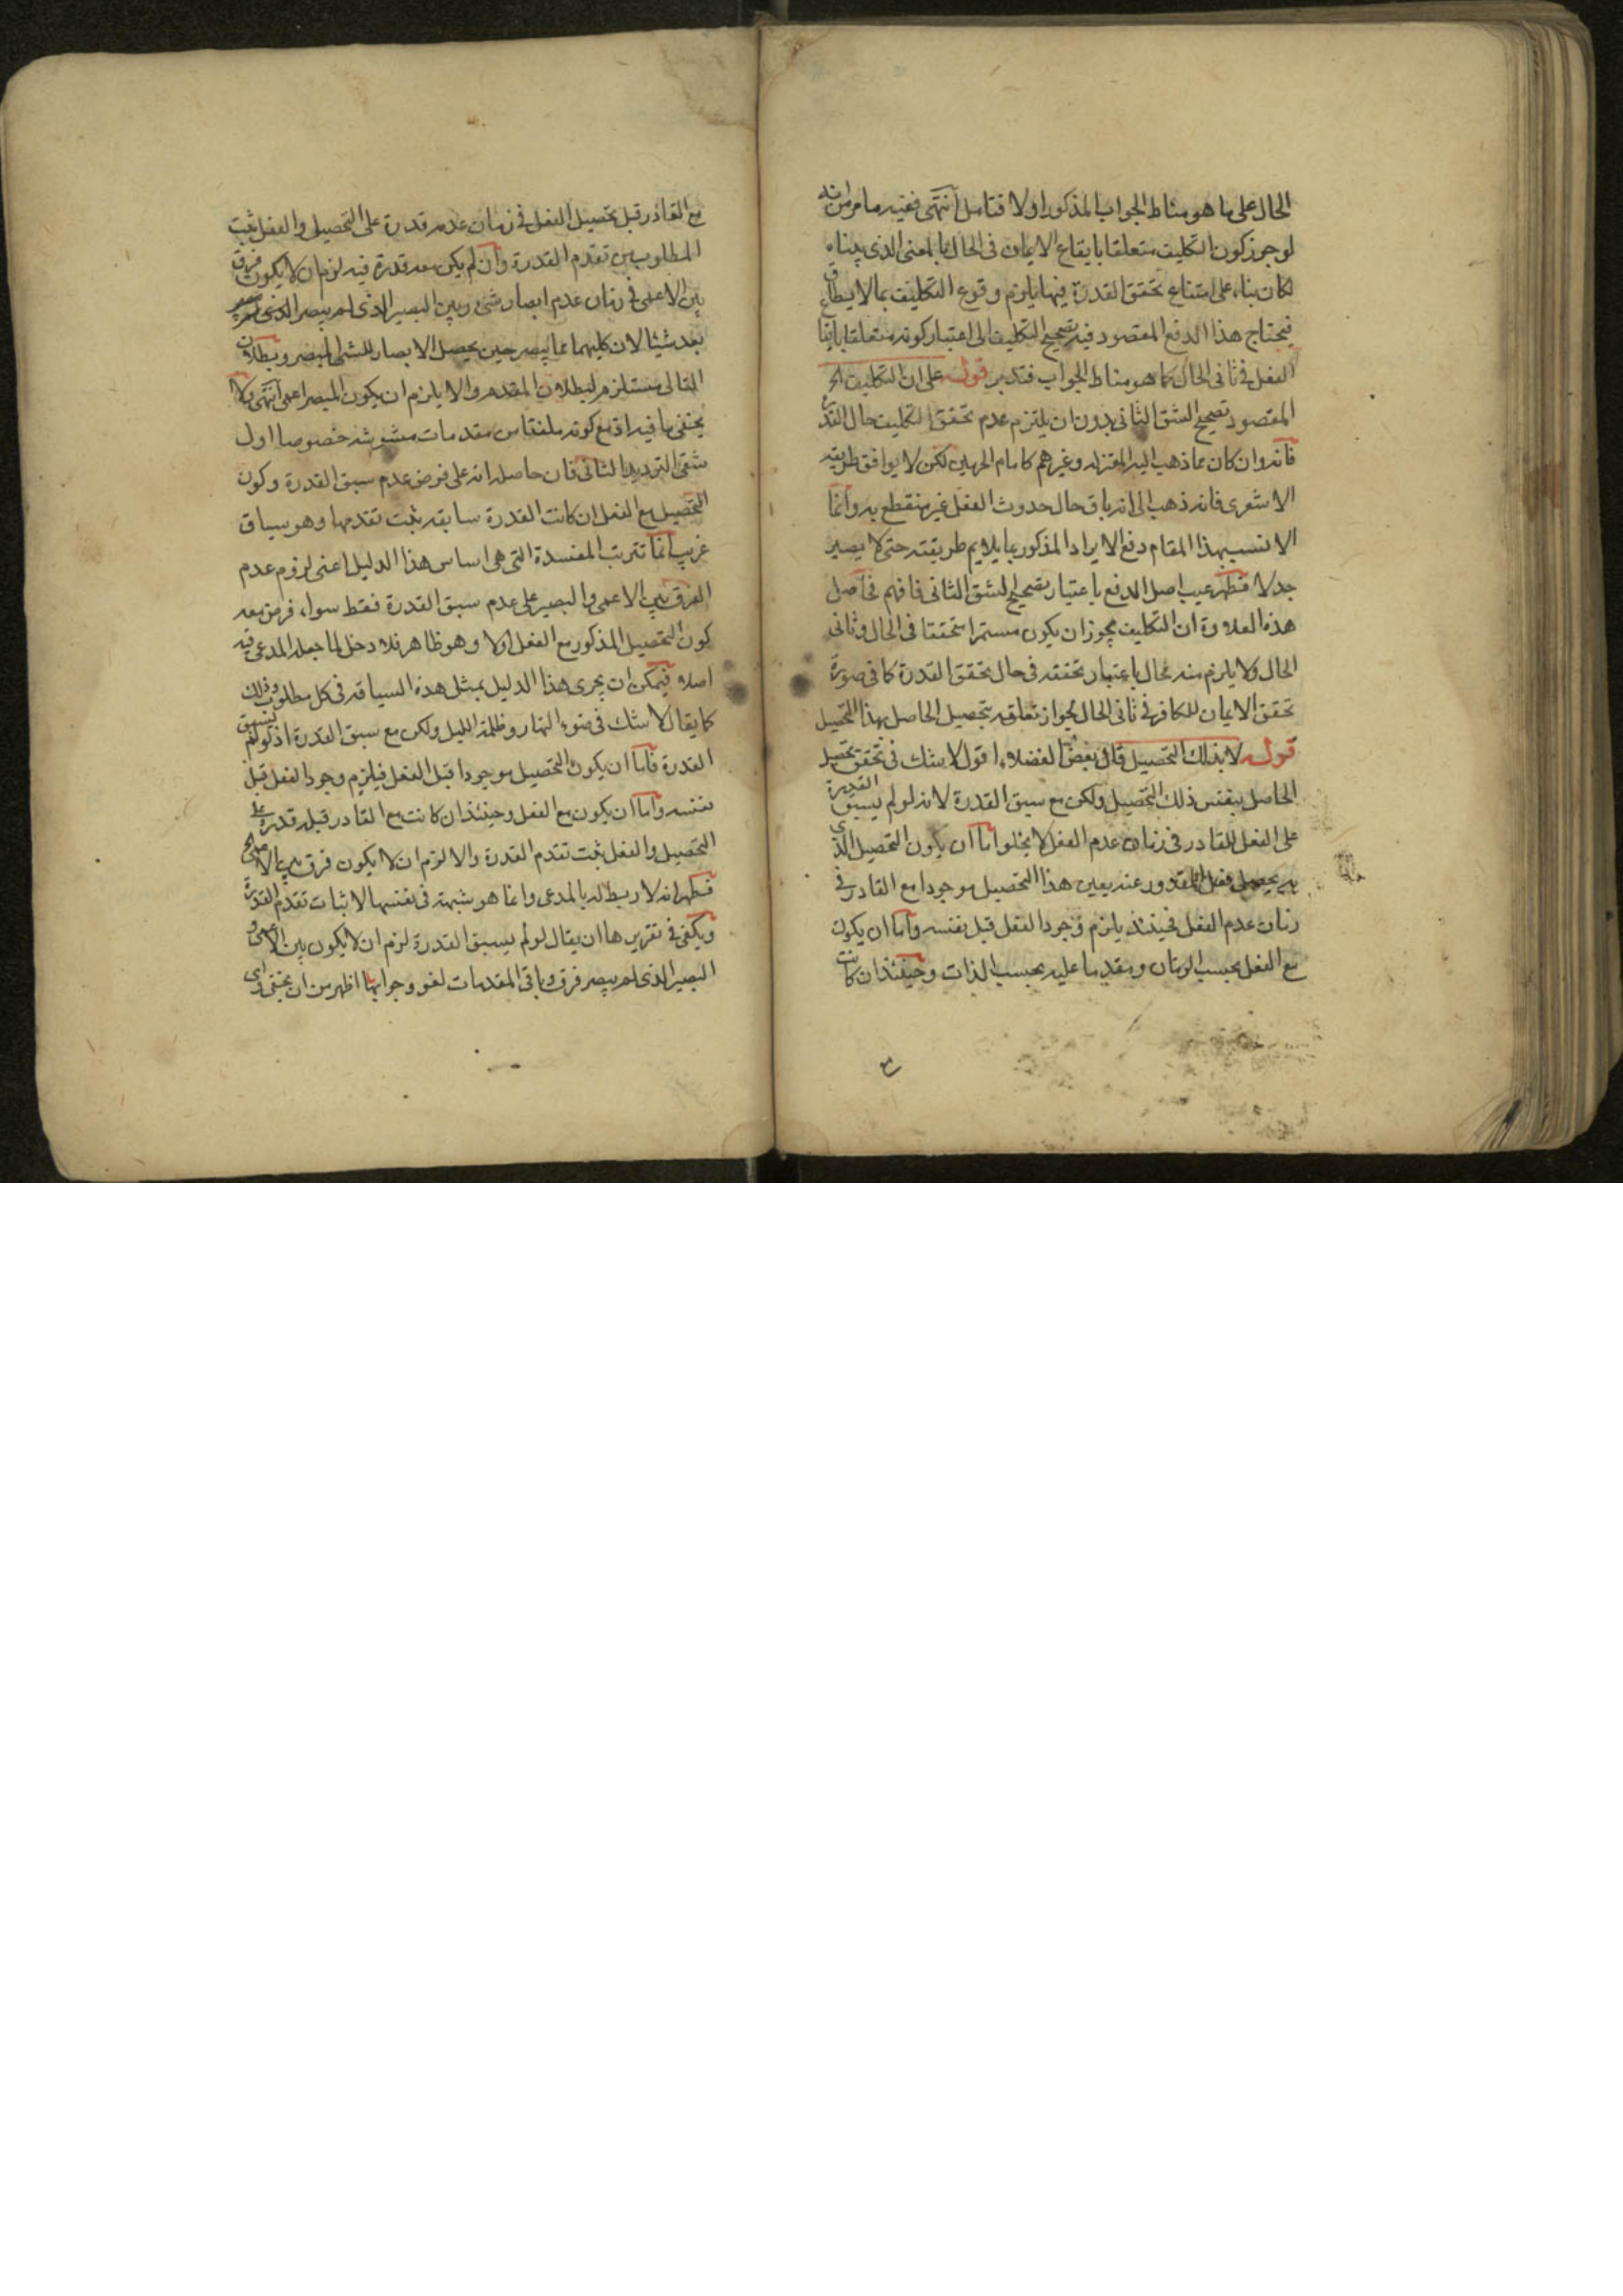 الحال على ما هو مناط الجواب المذكور اولا فتامل انتهى ففيه ما مر من انه
لو جوز كون التكليف متعلقا بايقاع الايمان في الحال بالمعنى الذي بيناه
لكان بناء على امتناع تحقق القدرة فيها يلزم وقوع التكليف بما لا يطاق
فيحتاج هذا الدفع المقصود فيه تصحيح التكليف الى اعتبار كونه متعلقا بايقاع
الفعل في ثاني الحال كما هو مناط الجواب فتدبر قوله على ان التكليف الخ
المقصود تصحيح الشق الثاني بدون ان يلتزم عدم تحقق التكليف حال القدرة
فانه وان كان مما ذهب اليه المعتزله وغيرهم كامام الحرمين لكن لا يوافق طريقه
الاشعرى فانه ذهب الى انه باق حال حدوث الفعل غير منقطع به وانما
الانسب بهذا المقام دفع الايراد المذكور بما يلايم طريقته حتى لا يصير
جدلا فظهر عيب اصل الدفع باعتبار تصحيح الشق الثاني فافهم فحاصل
هذه العلاوة ان التكليف يجوز ان يكون مستمرا متحققا في الحال وثاني
الحال ولا يلزم منه محال باعتبار تحققه في حال تحقق القدرة كما في صورة
تحقق الايمان للكافر في ثاني الحال لجواز تعلقه بتحصيل الحاصل بهذا التحصيل
قوله لا بذلك التحصيل قال بعض الفضلاء اقول لا شك في تحقق تحصيل
الحاصل بنفس ذلك التحصيل ولكن مع سبق القدرة لانه لو لم يسبق القدرة
على الفعل للقادر في زمان عدم الفعل لا يخلوا اما ان يكون التحصيل الذي
به يحصل فعل المقدور عنه بعين هذا التحصيل موجودا مع القادر في
زمان عدم الفعل فحينئذ يلزم وجود الفعل قبل نفسه واما ان يكون
مع الفعل بحسب الزمان ومقدما عليه بحسب الذات وحينئذ ان كانت
مع القادر قبل تحصيل الفعل في زمان عدمه قدرة على التحصيل والفعل ثبت
المطلوب من تقدم القدرة وان لم يكن معه قدرة فيه لزم ان لا يكون فرق
بين الاعمى في زمان عدم ابصار شئ وبين البصير الذي لم يبصر
بعد شيئا لان كليهما مما يبصر حين يحصل الابصار للشئ المبصر وبطلان
التالي مستلزم لبطلان المقدم والا يلزم ان يكون المبصر اعمى انتهى ولا
يخفى ما فيه اذ مع كونه ملفقا من مقدمات مشوشه خصوصا اول
شقي الترديد الثاني فان حاصله انه على فرض عدم سبق القدرة وكون
التحصيل مع الفعل ان كانت القدرة سابقه يثبت تقدمها وهو سياق
غريب انما تترتب المفسدة التي هي اساس هذا الدليل اعني لزوم عدم
الفرق بين الاعمى والبصير على عدم سبق القدرة فقط سواء فرض معه
كون التحصيل المذكور مع الفعل اولا وهو ظاهر فلا دخل لما جعله المدعى فيه
اصلا فيمكن ان يجرى هذا الدليل بمثل هذه السياقه في كل مطلوب وذلك
كما يقال لا شك في ضوء النهار وظلمة الليل ولكن مع سبق القدرة اذ لو لم يسبق
القدرة فاما ان يكون التحصيل موجودا قبل الفعل فيلزم وجود الفعل قبل
نفسه واما ان يكون مع الفعل وحينئذ ان كانت مع القادر قبله قدرة على
التحصيل والفعل يثبت تقدم القدرة والا لزم ان لا يكون فرق بين الاعمى الخ
فظهر انه لا ربط له بالمدعى وانما هو شبهة في نفسها لاثبات تقدم القدرة
ويكفى في تقريرها ان يقال لو لم يسبق القدرة لزم ان لا يكون بين الاعمى و
البصير الذي لم يبصر فرق وباقي المقدمات لغو وجوابها اظهر من ان يخفى